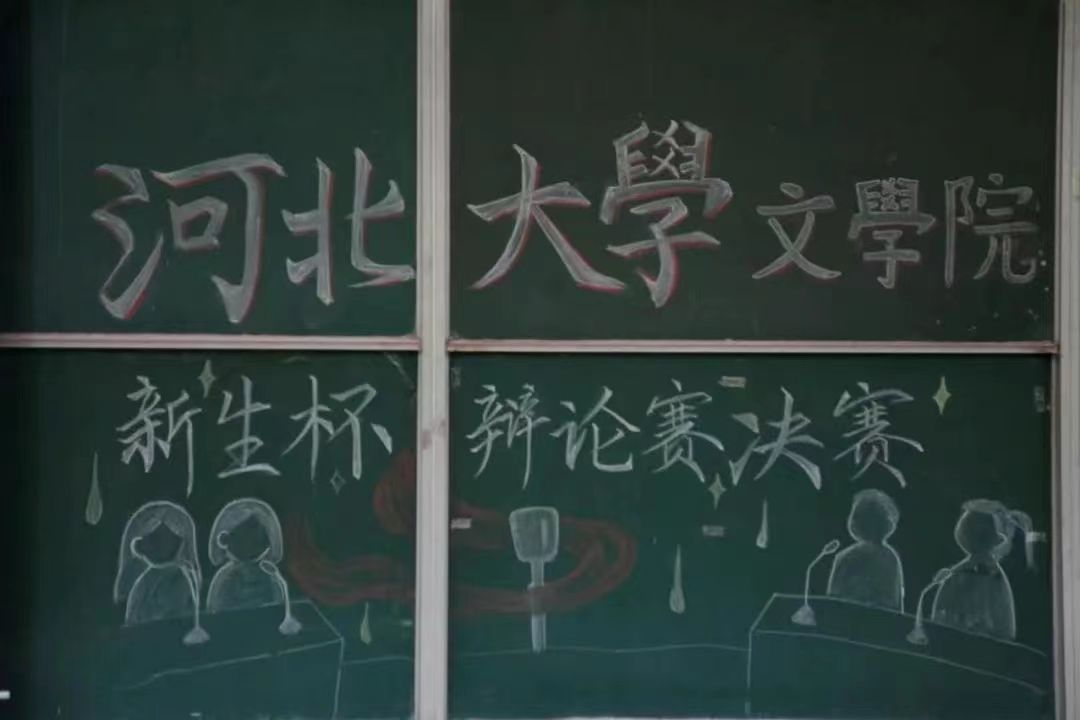 河北大學文學院
新生杯辩论赛决赛